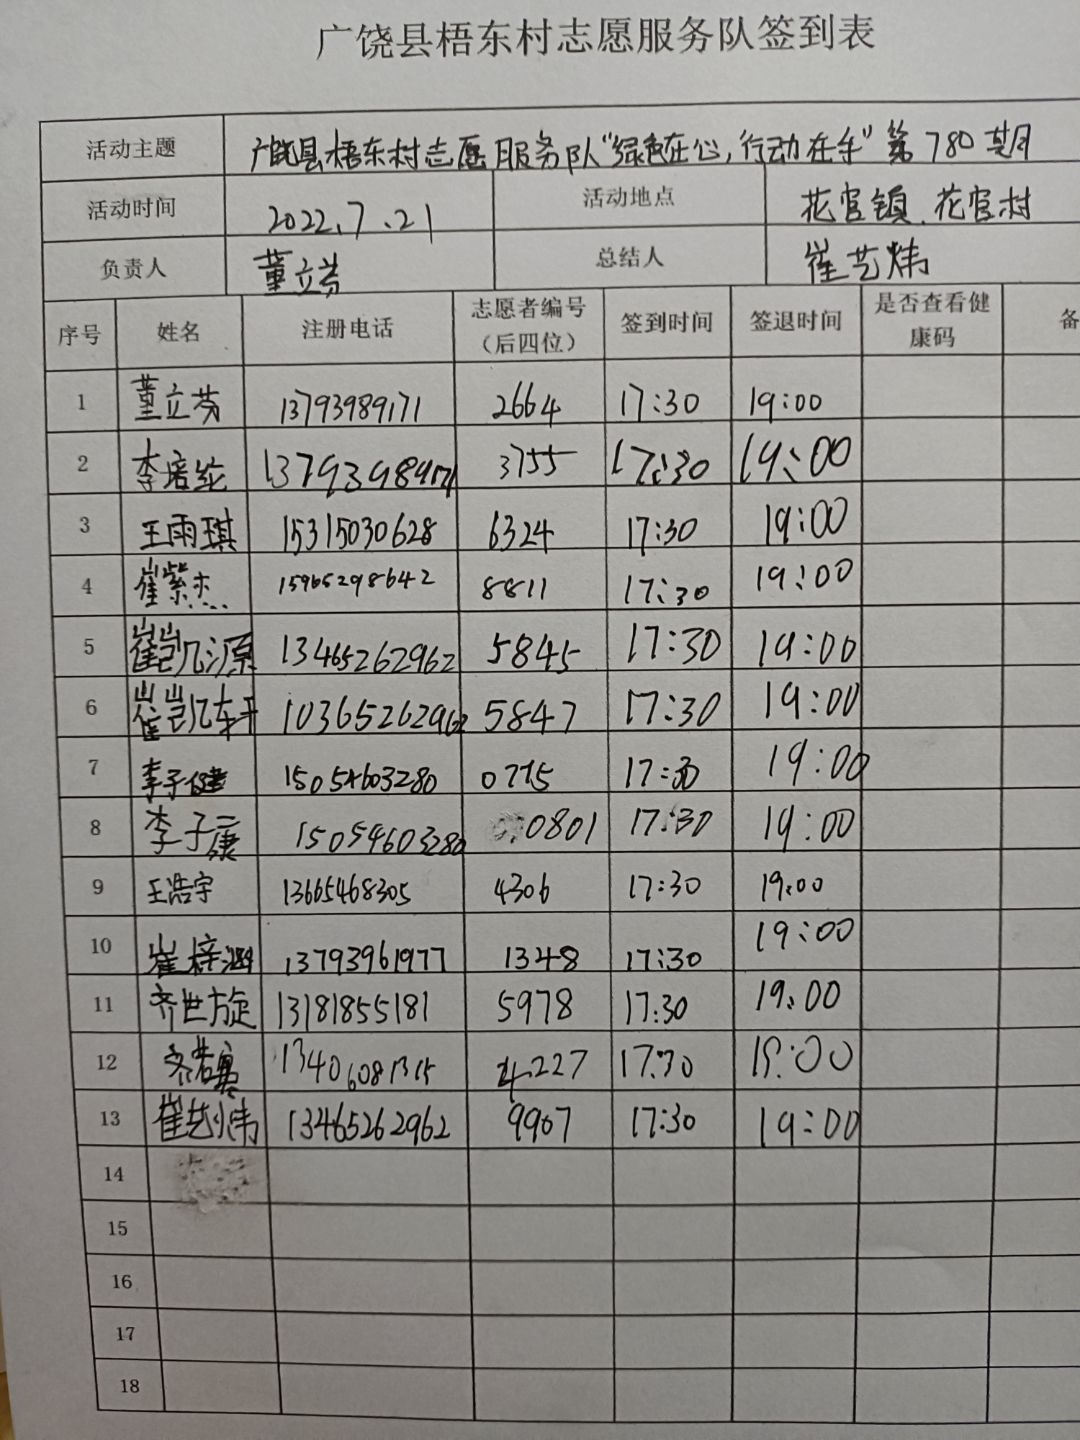 广饶县梧东村志愿服务队签到表
活动主题 广饶县梧东村志愿服务队“绿色在心,行动在手”第780期
活动时间 2022.7.21 活动地点 花官镇.花官村
负责人 董立芬 总结人 崔艺炜
序号 姓名 注册电话 志愿者编号（后四位） 签到时间 签退时间 是否查看健康码 备
1 董立芬 13793989171 2664 17:30 19:00
2 李培纶 13793989171 3755 17:30 19:00
3 王雨琪 15315030628 6324 17:30 19:00
4 崔紫杰 15965298642 8811 17:30 19:00
5 崔凯源 13465262962 5845 17:30 19:00
6 崔凯轩 10365262962 5847 17:30 19:00
7 李子健 15054603280 0775 17:30 19:00
8 李子康 15054603280 0801 17:30 19:00
9 王浩宇 13665468305 4306 17:30 19:00
10 崔梓涵 13793961977 1348 17:30 19:00
11 齐世旋 13181855181 5978 17:30 19:00
12 13406081315 4227 17:30 19:00
13 崔艺炜 13465262962 9907 17:30 19:00
14
15
16
17
18